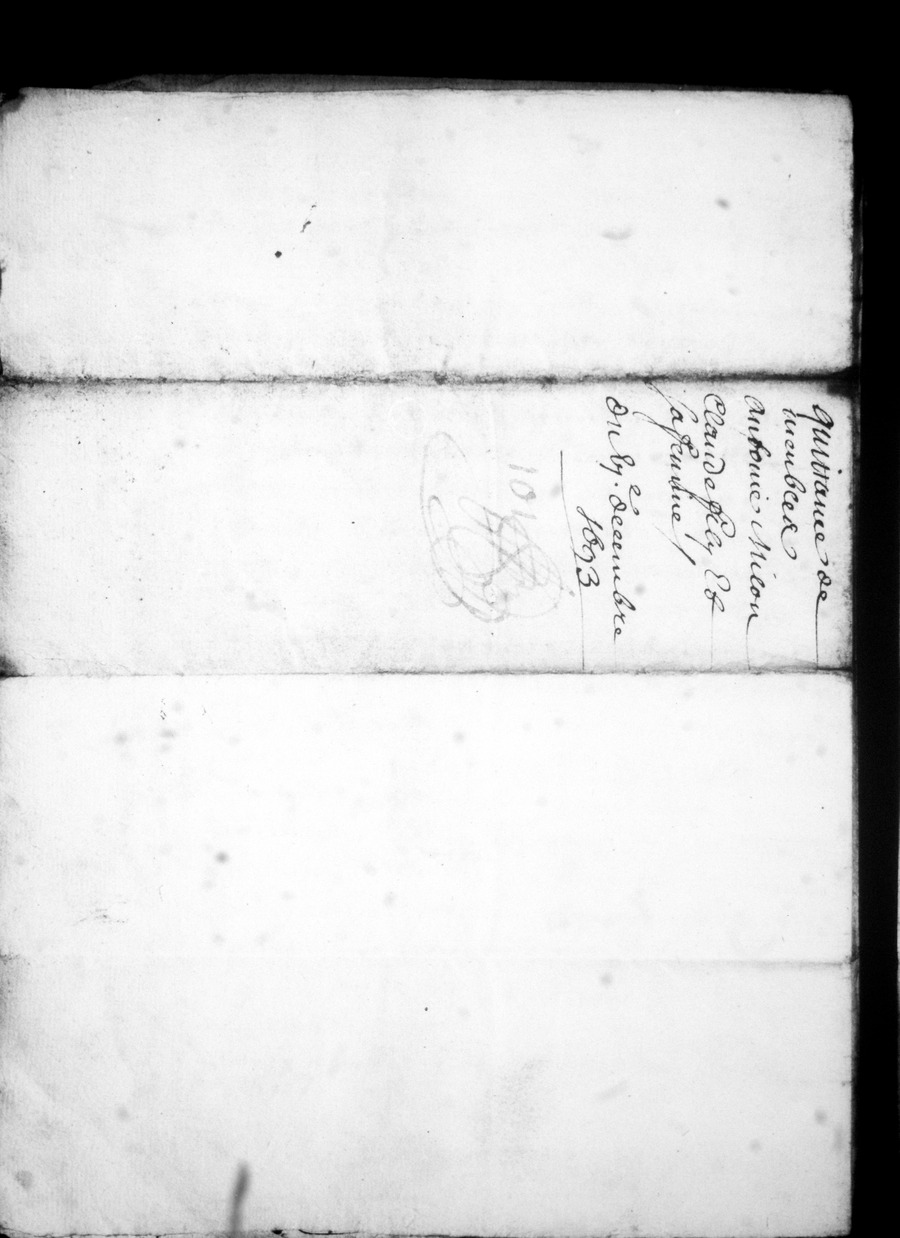 Quittance de
meubles
Antoinie Milon
Claude fily Et
sa femme /
Du by.e decembre
1693
104